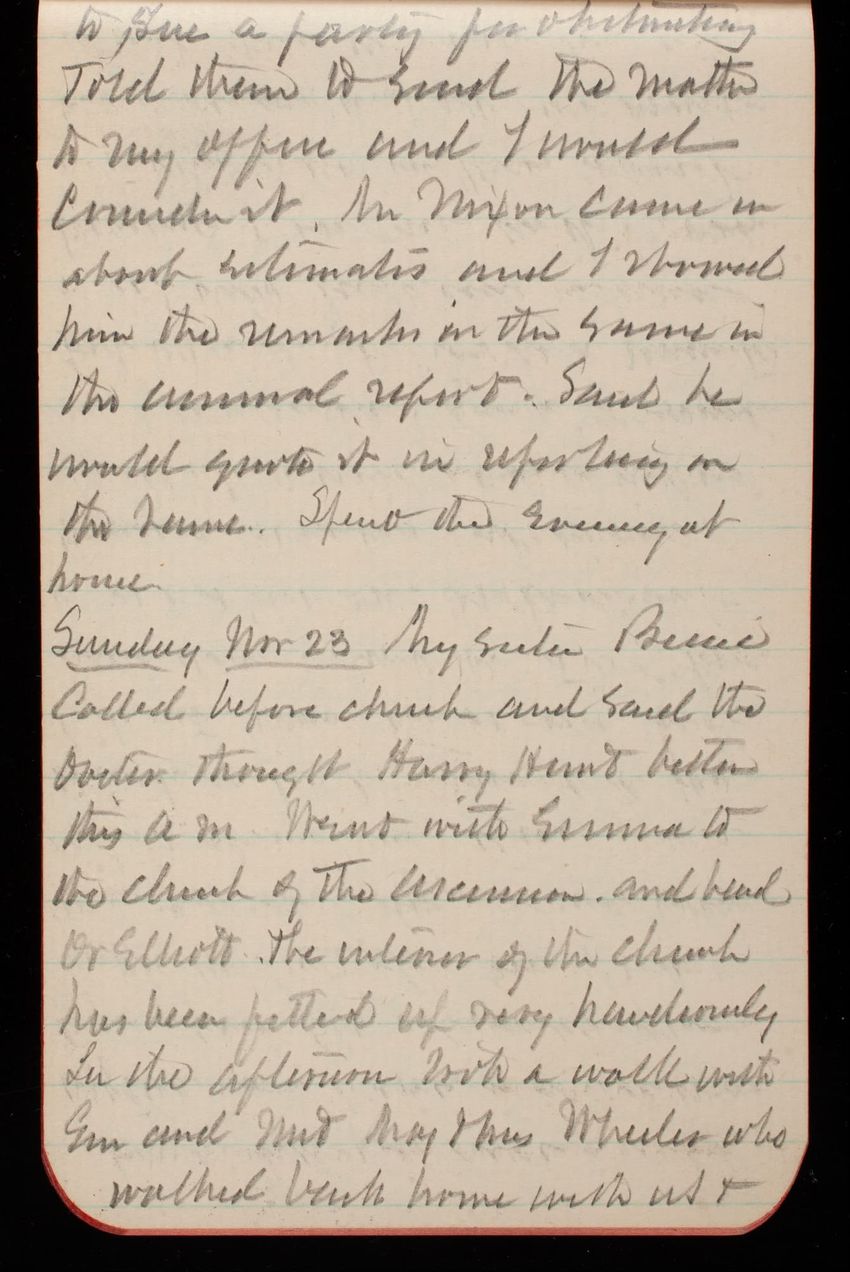 to sue a party for obstructing
Told them to send the matter
to my office and I would
Consider it. Mr Nixon came in
about estimates and I showed
him the remarks on the same in
the annual report. Said he
would quote it in reporting on
the same. Spent the evening at
home
Sunday Nov 23 My sister Bessie
Called before church and said the
Doctor thought Harry Hunt better
this a m Went with Emma to
the church of the Ascension. and heard
Dr Elliott. The interior of the church
has been fitted up very handsomely
In the afternoon took a walk with
Em and met Maj & Mrs Wheeler who
walked back home with us &